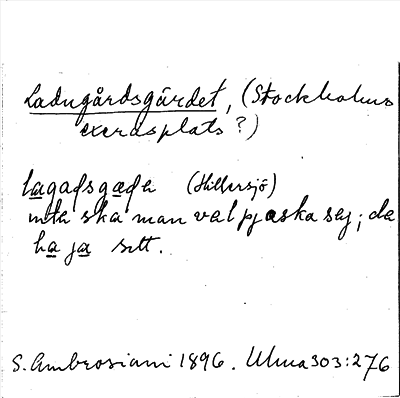 Ladugårdsgärdet, (Stockholms
exercisplats?)
lagadsgæda (Hillersjö)
inte ska man val pjaska sig; da
ha ja sitt.
S. Ambrosiani 1896. Ulma 303:276